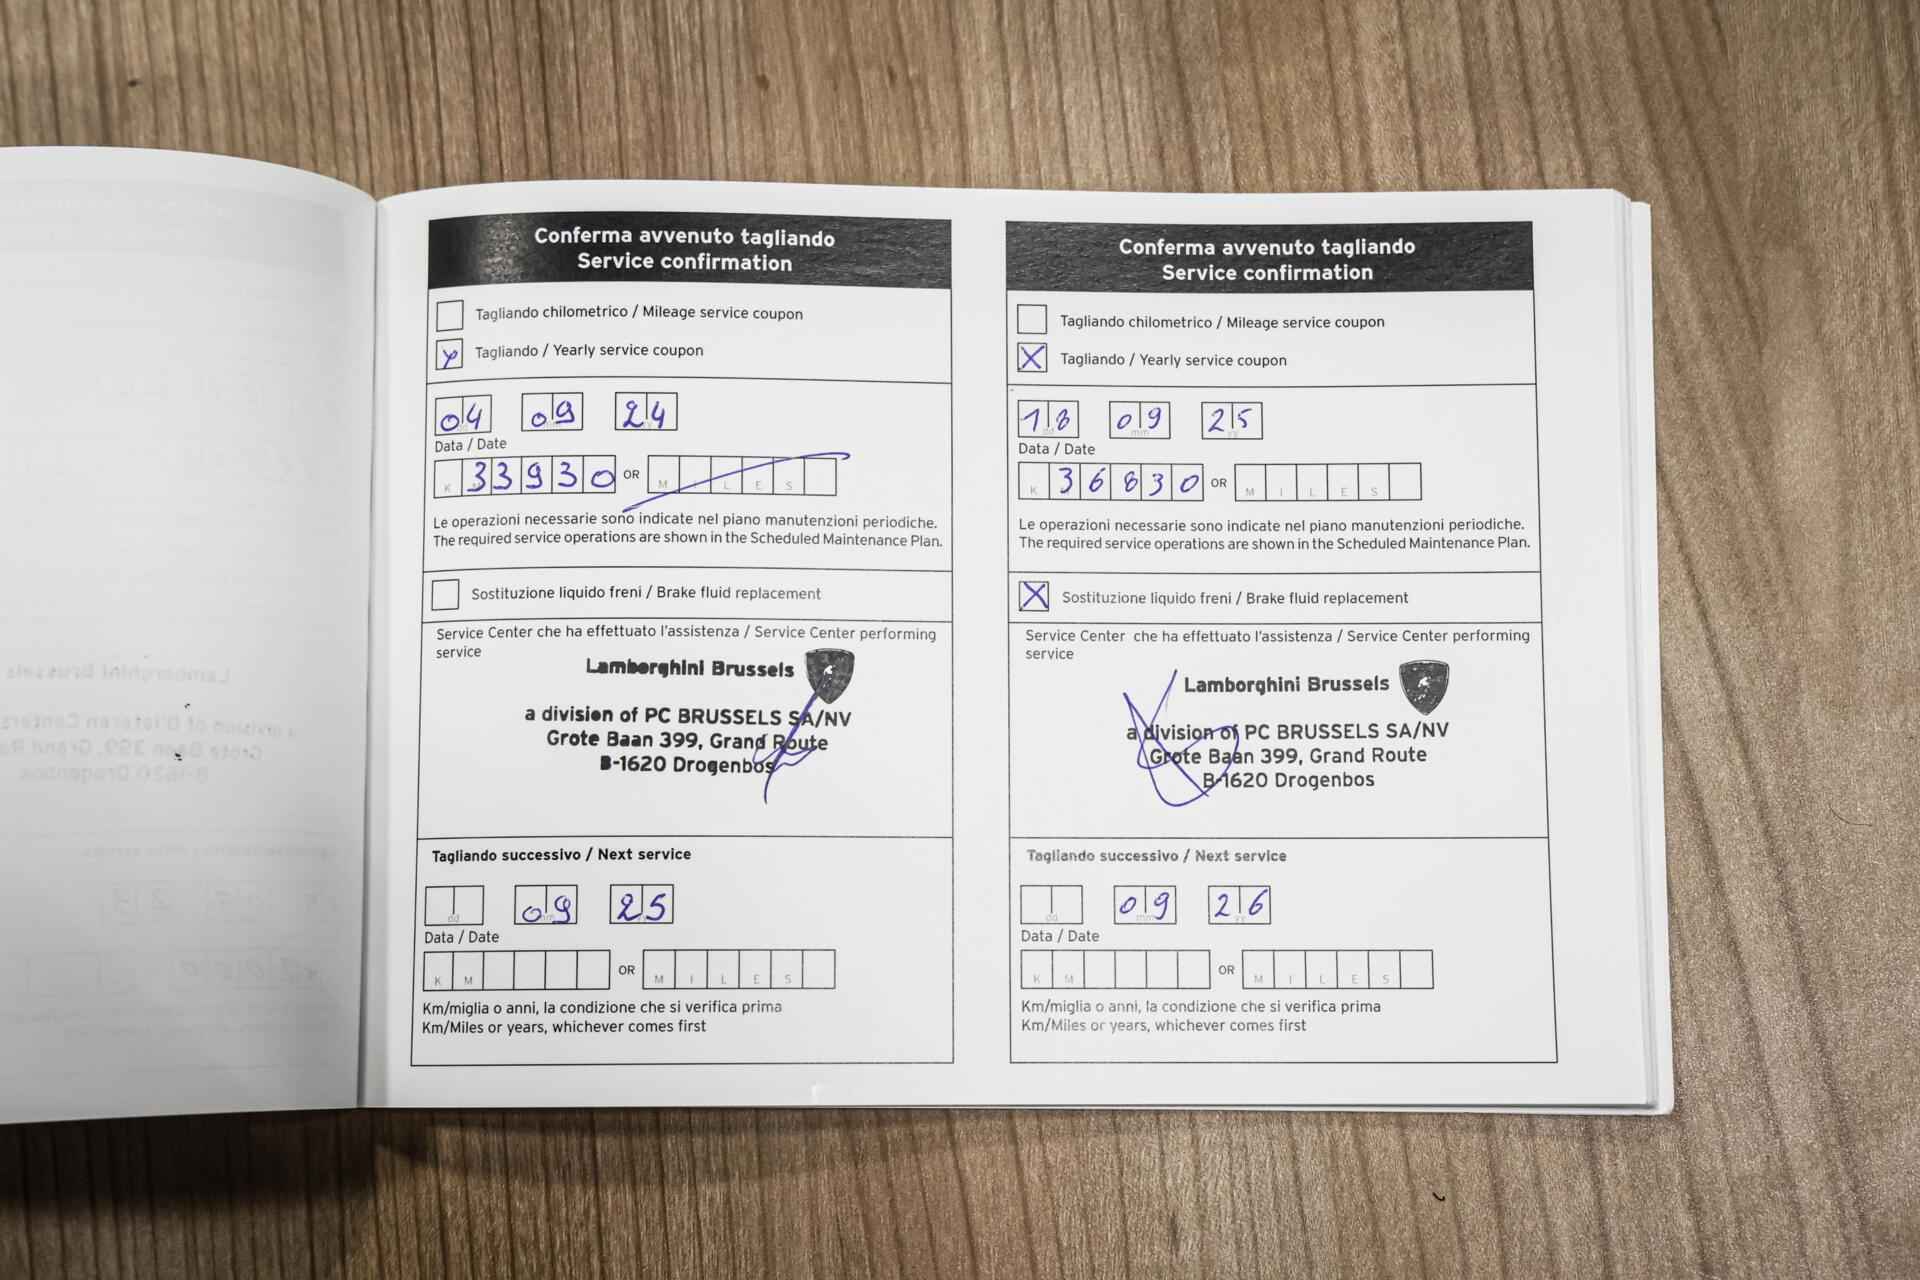 Conferma avvenuto tagliando
Service confirmation
Tagliando chilometrico / Mileage service coupon
Tagliando / Yearly service coupon
04 09 24
Data / Date
K 33930 OR M I L E S
Le operazioni necessarie sono indicate nel piano manutenzioni periodiche.
The required service operations are shown in the Scheduled Maintenance Plan.
Sostituzione liquido freni / Brake fluid replacement
Service Center che ha effettuato l'assistenza / Service Center performing
service
Lamborghini Brussels
a division of PC BRUSSELS SA/NV
Grote Baan 399, Grand Route
B-1620 Drogenbos
Tagliando successivo / Next service
dd 09 25
Data / Date
K M OR M I L E S
Km/miglia o anni, la condizione che si verifica prima
Km/Miles or years, whichever comes first
Conferma avvenuto tagliando
Service confirmation
Tagliando chilometrico / Mileage service coupon
X Tagliando / Yearly service coupon
18 09 25
dd mm yy
Data / Date
K 36830 OR M I L E S
Le operazioni necessarie sono indicate nel piano manutenzioni periodiche.
The required service operations are shown in the Scheduled Maintenance Plan.
X Sostituzione liquido freni / Brake fluid replacement
Service Center che ha effettuato l'assistenza / Service Center performing
service
Lamborghini Brussels
a division of PC BRUSSELS SA/NV
Grote Baan 399, Grand Route
B-1620 Drogenbos
Tagliando successivo / Next service
09 26
dd mm yy
Data / Date
K M OR M I L E S
Km/miglia o anni, la condizione che si verifica prima
Km/Miles or years, whichever comes first